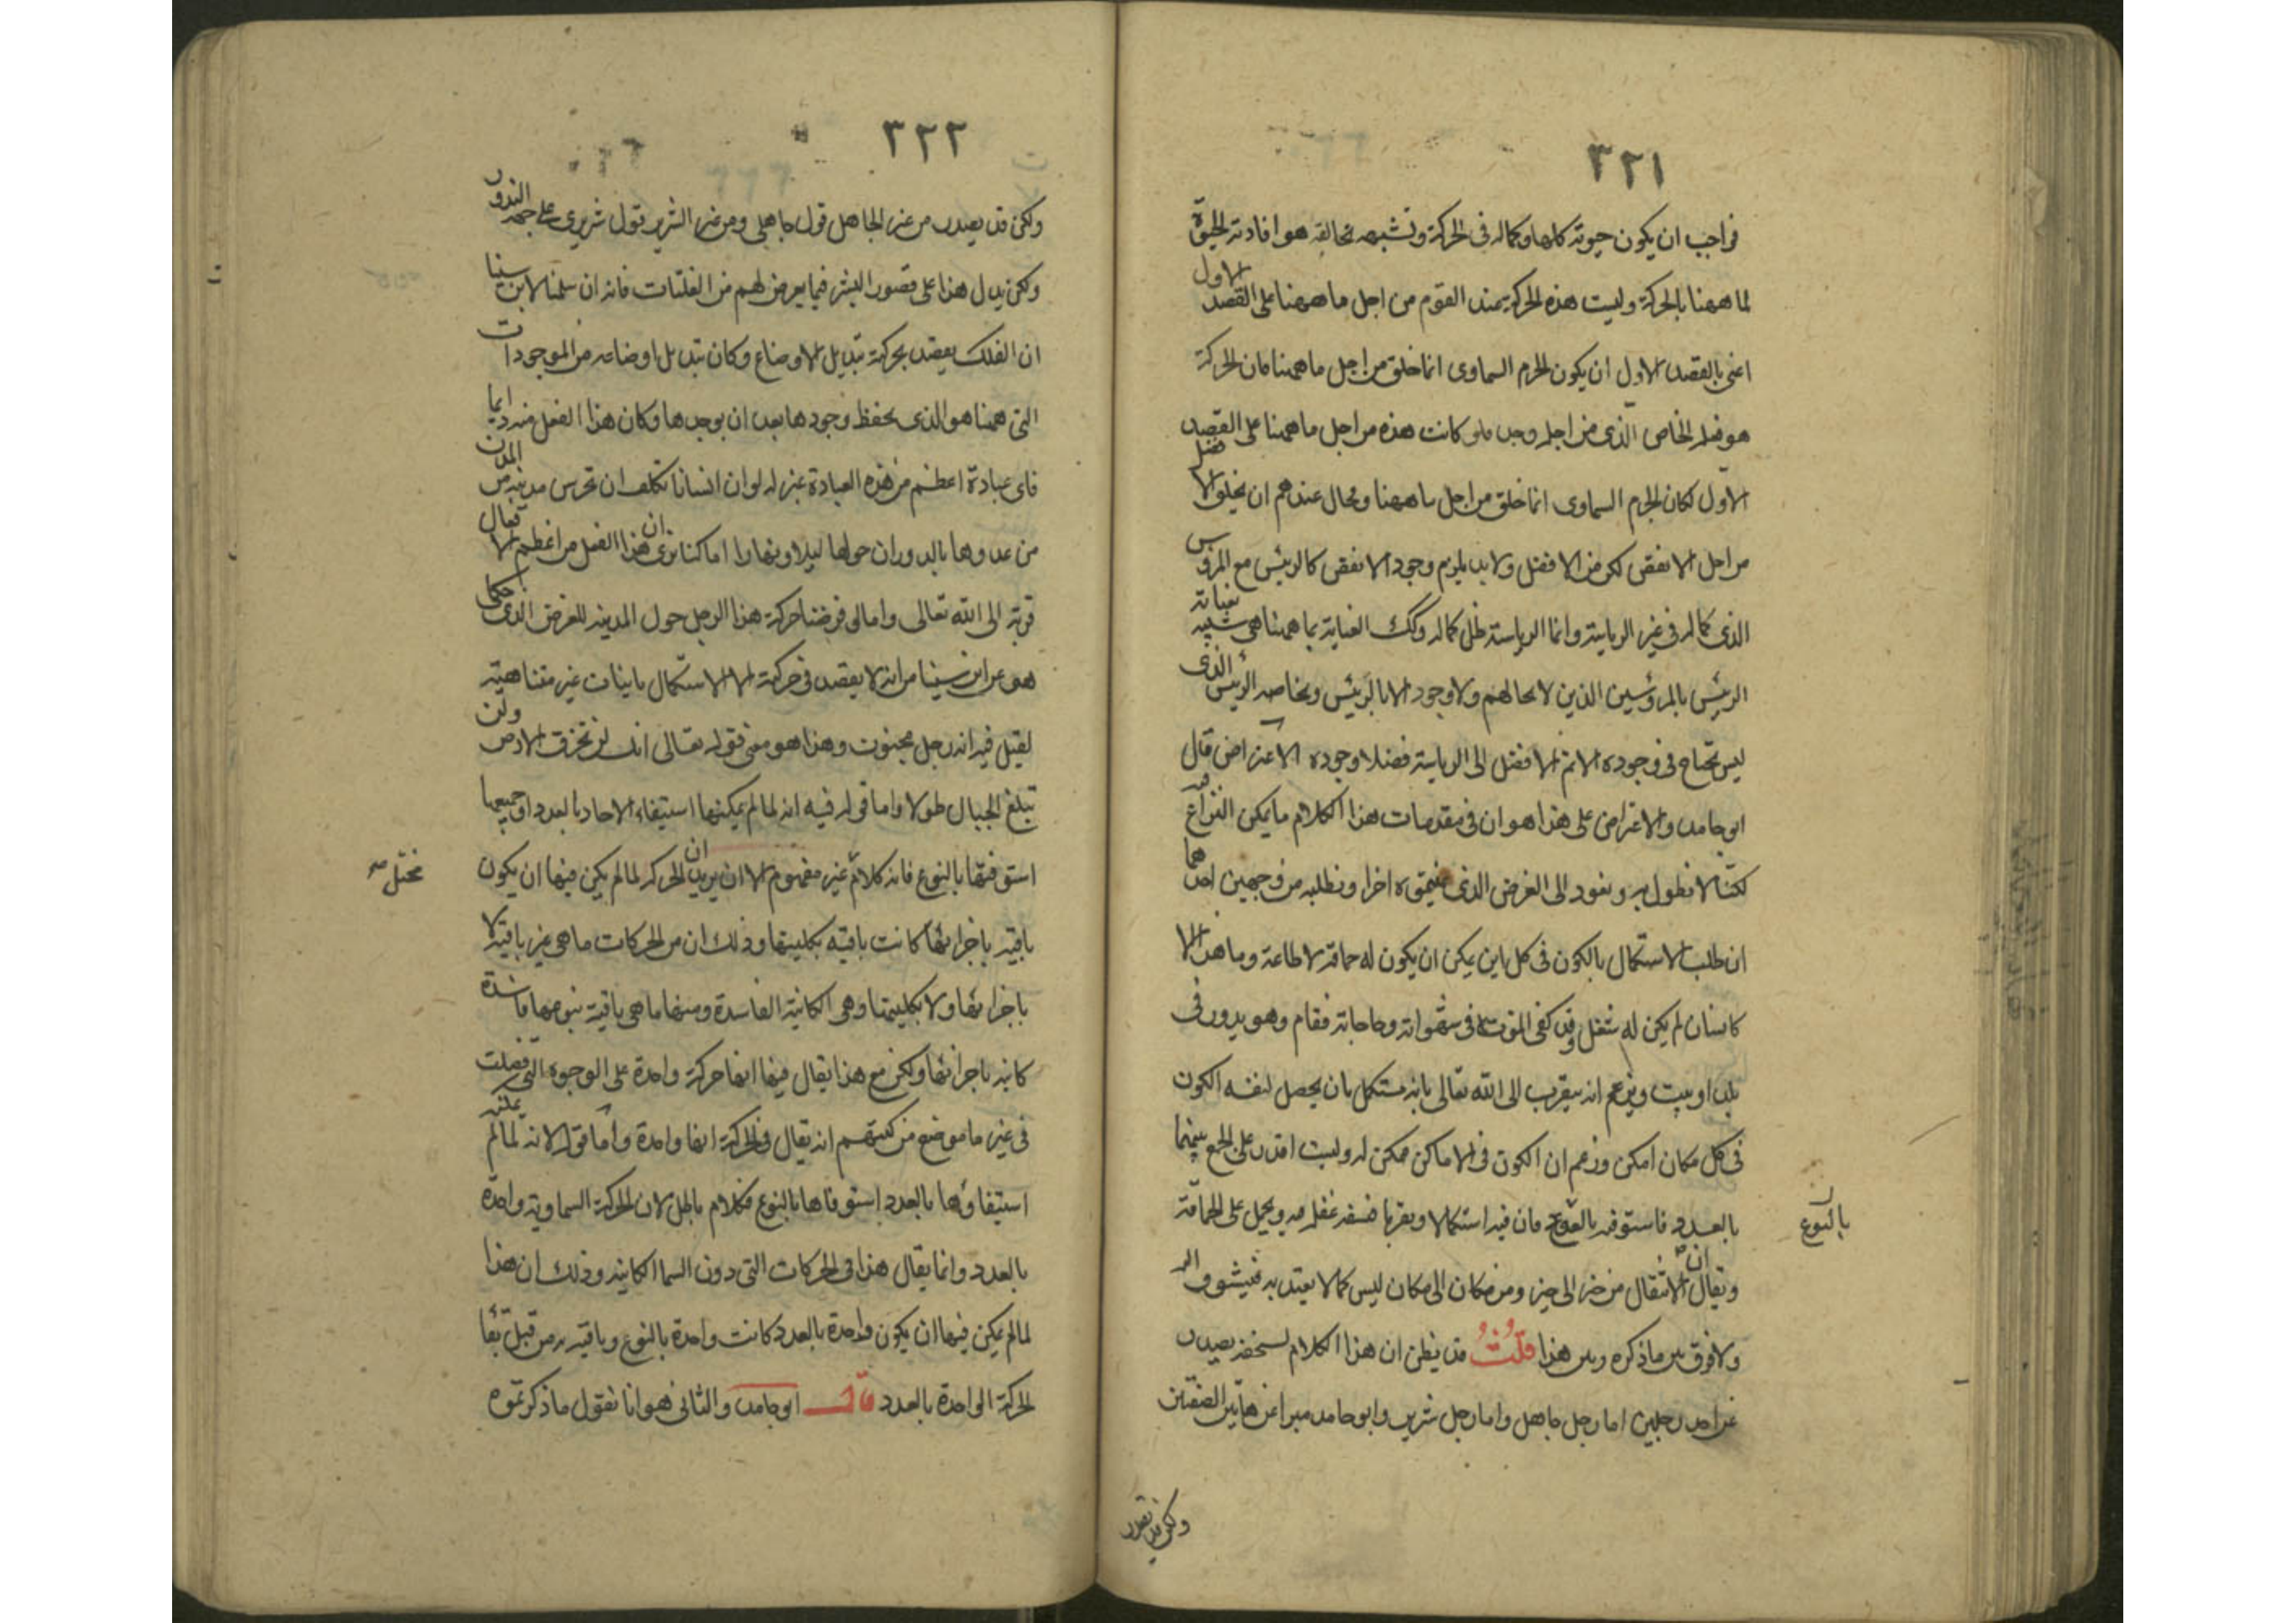 ٣٢١
فواجب ان يكون حيوته كلها وكماله فى الحركة وتشبهه بخالقه هو افادته الحيوة
لما ههنا بالحركة وليست هذه الحركة عند القوم من اجل ما ههنا على القصد الاول
اعنى بالقصد الاول ان يكون الجرم السماوى انما خلق من اجل ما ههنا فان الحركة
هو فعله الخاص الذى من اجله وجد فلو كانت هذه من اجل ما ههنا على القصد
الاول لكان الجرم السماوى انما خلق من اجل ما ههنا ومحال عندهم ان يخلق الافضل
من اجل الانقص لكن من الافضل ولابد يلزم وجود الانقص كالرئيس مع المرؤس
الذى كماله فى غير الرياسة وانما الرياسة ظل كماله وكك العناية بما ههنا هى شبيه بعناية
الرئيس بالمرؤسين الذين لا نجا لهم ولا وجود الا بالرئيس وبخاصه الرئيس الذى
ليس يحتاج فى وجوده الاتم الافضل الى الرياسة فضلا وجوده الاعتراض قال
ابو حامد والاعتراض على هذا هو ان فى مقدمات هذا الكلام ما يمكن النزاع فيه
لكنا لا نطول به ونعود الى الغرض الذى عنيتموه اخرا ونطلبه من وجهين احدهما
ان طلب الاستكمال بالكون فى كل اين يمكن ان يكون له حماقة لا طاعة وما هذا الا
كانسان لم يكن له شغل وقد كفى المؤنة فى شهواته وحاجاته فقام وهو يدور فى
بلد او بيت ويزعم انه يتقرب الى الله تعالى بانه مستكمل بان يحصل لنفسه الكون
فى كل مكان امكن وزعم ان الكون فى الاماكن ممكن له وليست اقدر على الجمع بينها
بالعدد فاستوفيه بالنوع فان فيه استكمالا وتقربا فسفه عقله فيه ويحمل على الحماقة
بالنوع
ويقال ان الانتقال من حيز الى حيز ومن مكان الى مكان ليس كمالا يعتد به فيتشوق اليه
ولا فرق بين ما ذكره وبين هذا قلت قد يظن ان هذا الكلام لسخفه يصدر
عن احد رجلين اما رجل جاهل واما رجل شرير وابو حامد مبرا عن هاتين الصفتين
ولكن قد يصدر
٣٢٢
ولكن قد يصدر من غير الجاهل قول جاهلى ومن غير الشرير قول شريرى على جهة الندور
ولكن يدل هذا على قصور البشر فيما يعرض لهم من الفلتات فانه ان سلمنا لابن سينا
ان الفلك يقصد بحركة تبديل الاوضاع وكان تبديل اوضاعه من الموجودات
التى ههنا هو الذى يحفظ وجودها بعد ان يوجدها وكان هذا الفعل منه دايما
فاى عبادة اعظم من هذه العبادة بمنزلة لو ان انسانا تكلف ان يحرس مدينة من المدن
من عدوها بالدوران حولها ليلا ونهارا اما كنا نرى ان هذا الفعل من اعظم الافعال
قربة الى الله تعالى واما لو فرضنا حركة هذا الرجل حول المدينه للغرض الذى حكا
هو عن ابن سينا من انه لا يقصد فى حركته الا الاستكمال باينات غير متناهية
لقيل فيه انه رجل مجنون وهذا هو معنى قوله تعالى انك لن تخرق الارض ولن
تبلغ الجبال طولا واما قوله فيه انه لما لم يمكنها استيفاء الاحاد بالعدد او جميعها
استوفتها بالنوع فانه كلام غير مفهوم الا ان يريد ان الحركه لما لم يكن فيها ان يكون
مختل صح
باقية باجزائها كانت باقيه بكليتها وذلك ان من الحركات ما هى غير باقية لا
باجزائها ولا بكليتها وهى الكائنة الفاسدة ومنها ما هى باقية بنوعها فاسدة
كاينه باجزائها ولكن مع هذا يقال فيها انها حركة واحدة على الوجوه التى فصلت
فى غير ما موضع من كتبهم انه يقال فى الحركة انها واحدة واما قوله لانه لما لم يمكنه
استيفاؤها بالعدد استوفاها بالنوع فكلام باطل لان الحركة السماوية واحدة
بالعدد وانما يقال هذا فى الحركات التى دون السما الكاينه وذلك ان هذا
لما لم يمكن فيها ان يكون واحدة بالعدد كانت واحدة بالنوع وباقيه من قبل بقا
الحركة الواحدة بالعدد قال ابو حامد والثانى هو انا نقول ما ذكرتموه